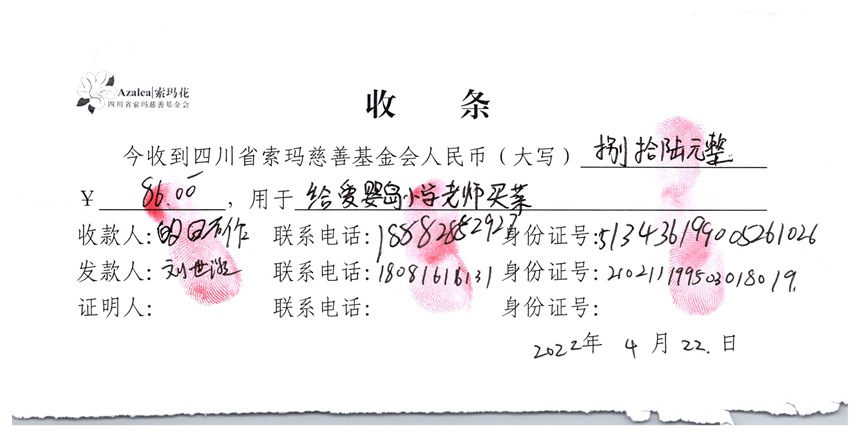 Azalea|索玛花
四川省索玛慈善基金会
收 条
今收到四川省索玛慈善基金会人民币（大写）捌拾陆元整
¥ 86.00，用于 给爱婴岛小学老师买菜
收款人：的日石作 联系电话：18882852927 身份证号：513436199005261026
发款人：刘世 联系电话：18081616131 身份证号：210211199503018019.
证明人： 联系电话： 身份证号：
2022年 4 月 22. 日